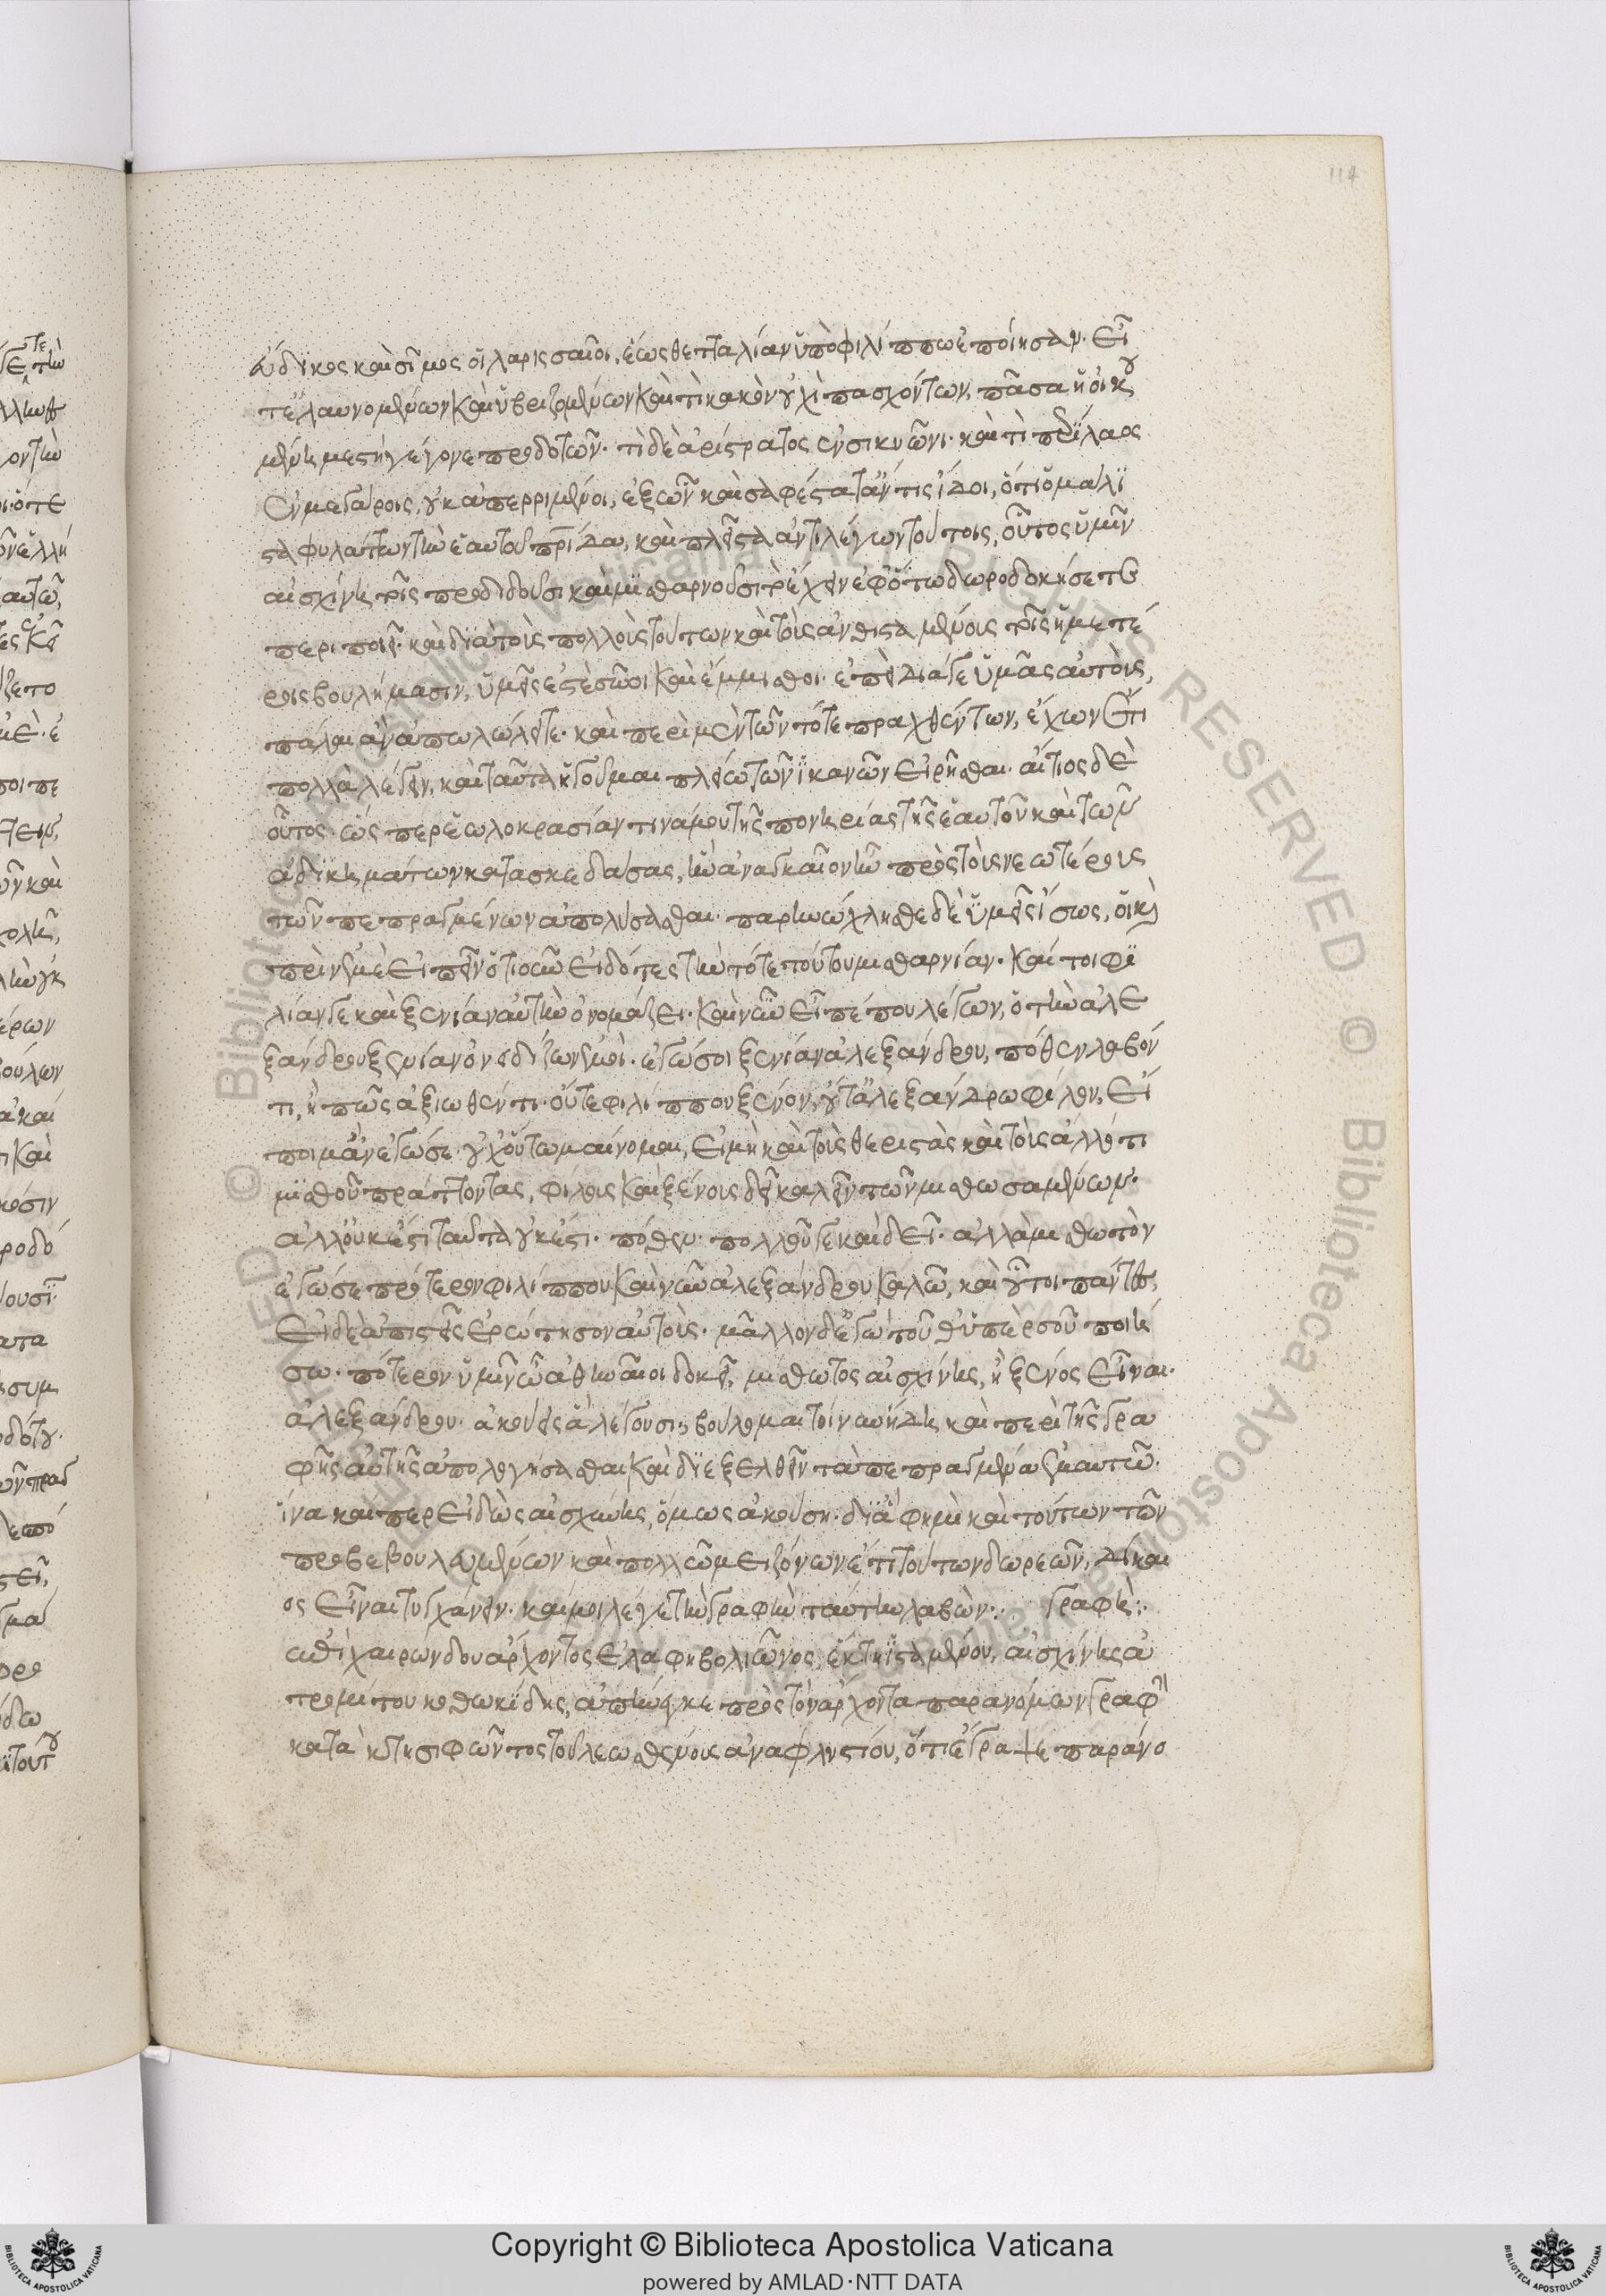 εὔδικος καὶ σῖμος οἱ λαρισσαῖοι, ἕως θετταλίαν ὑπὸ φιλίππῳ ἐποίησαν. εἶ
τ' ἐλαυνομένων καὶ ὑβριζομένων καὶ τί κακὸν οὐχὶ πασχόντων, πᾶσα ἡ οἰκου
μένη μεστὴ γέγονε προδοτῶν. τί δὲ ἀρίστρατος ἐν σικυῶνι. καὶ τί περίλαος
ἐν μεγάροις, οὐκ ἀπερριμμένοι, ἐξ ὧν καὶ σαφέστατ' ἄν τις ἴδοι, ὅτι ὁ μάλι
στα φυλάττων τὴν ἑαυτοῦ πατρίδα, καὶ πλεῖστα ἀντιλέγων τούτοις, οὗτος ὑμῖν
αἰσχίνη τοῖς προδιδοῦσι καὶ μισθαρνοῦσι τὸ ἔχειν ἐφ' ὅτῳ δωροδοκήσετε
περιποιεῖ. καὶ διὰ τοὺς πολλοὺς τούτων καὶ τοὺς ἀνθισταμένους τοῖς ἡμετέ
ροις βουλήμασιν, ὑμεῖς ἐστὲ σῶοι καὶ ἔμμισθοι. ἐπεὶ διά γε ὑμᾶς αὐτοὺς,
πάλαι ἂν ἀπωλώλειτε. καὶ περὶ μὲν τῶν τότε πραχθέντων, ἔχων ἔτι
πολλὰ λέγειν, καὶ ταῦτα ἡγοῦμαι πλείω τῶν ἱκανῶν εἰρῆσθαι. αἴτιος δὲ
οὗτος. ὥσπερ ἑωλοκρασίαν τινά μου τῆς πονηρίας τῆς ἑαυτοῦ καὶ τῶν
ἀδικημάτων κατασκεδάσας, ἣν ἀναγκαῖον ἦν πρὸς τοὺς νεωτέρους
τῶν πεπραγμένων ἀπολύσασθαι. παρηνώχλησθε δὲ ὑμεῖς ἴσως, οἱ καὶ
πρὶν ἐμὲ εἰπεῖν ὁτιοῦν εἰδότες τὴν τότε τούτου μισθαρνίαν. καίτοι φι
λίαν γε καὶ ξενίαν αὐτὴν ὀνομάζει. καὶ νῦν εἶπέ που λέγων, ὁ τὴν ἀλε
ξάνδρου ξενίαν ὀνειδίζων ἐμοί. ἐγώ σοι ξενίαν ἀλεξάνδρου, πόθεν λαβόν
τι, ἢ πῶς ἀξιωθέντι. οὔτε φιλίππου ξένον, οὔτ' ἀλεξάνδρου φίλον, εἴ
ποιμ' ἂν ἐγώ σε. οὐχ οὕτω μαίνομαι, εἰ μὴ καὶ τοὺς θεριστὰς καὶ τοὺς ἄλλό τι
μισθοῦ πράττοντας, φίλους καὶ ξένους δεῖ καλεῖν τῶν μισθωσαμένων.
ἀλλ' οὐκ ἔστι ταῦτα οὐκ ἔστι. πόθεν. πολλοῦ γε καὶ δεῖ. ἀλλὰ μισθωτὸν
ἐγώ σε πρότερον φιλίππου καὶ νῦν ἀλεξάνδρου καλῶ, καὶ οὗτοι πάντες,
εἰ δὲ ἀπιστεῖς ἐρώτησον αὐτοὺς. μᾶλλον δ' ἐγὼ τοῦθ' ὑπὲρ σοῦ ποιή
σω. πότερον ὑμῖν ὦ ἀθηναῖοι δοκεῖ, μισθωτος αἰσχίνης, ἢ ξένος εἶναι.
ἀλεξάνδρου. ἀκούεις ἃ λέγουσι; βούλομαι τοίνυν ἤδη καὶ περὶ τῆς γρα
φῆς αὐτῆς ἀπολογήσασθαι καὶ διεξελθεῖν τὰ πεπραγμένα ἐμαυτῷ.
ἵνα καίπερ εἰδὼς αἰσχίνης, ὅμως ἀκούσῃ. δι' ἅ φημι καὶ τούτων τῶν
προβεβουλευμένων καὶ πολλῷ μειζόνων ἔτι τούτων δωρεῶν, δίκαι
ος εἶναι τυγχάνειν. καί μοι λέγε τὴν γραφὴν ταύτην λαβών. γραφή:
ἐπὶ χαιρώνδου ἄρχοντος ἐλαφηβολιῶνος, ἕκτῃ ἱσταμένου, αἰσχίνης ἀ
τρομήτου κοθωκίδης, ἀπήνεγκε πρὸς τὸν ἄρχοντα παρανόμων γραφὴ
κατὰ κτησιφῶντος τοῦ λεωσθένους ἀναφλυστίου, ὅτι ἔγραψε παράνο
114
Copyright © Biblioteca Apostolica Vaticana
powered by AMLAD·NTT DATA